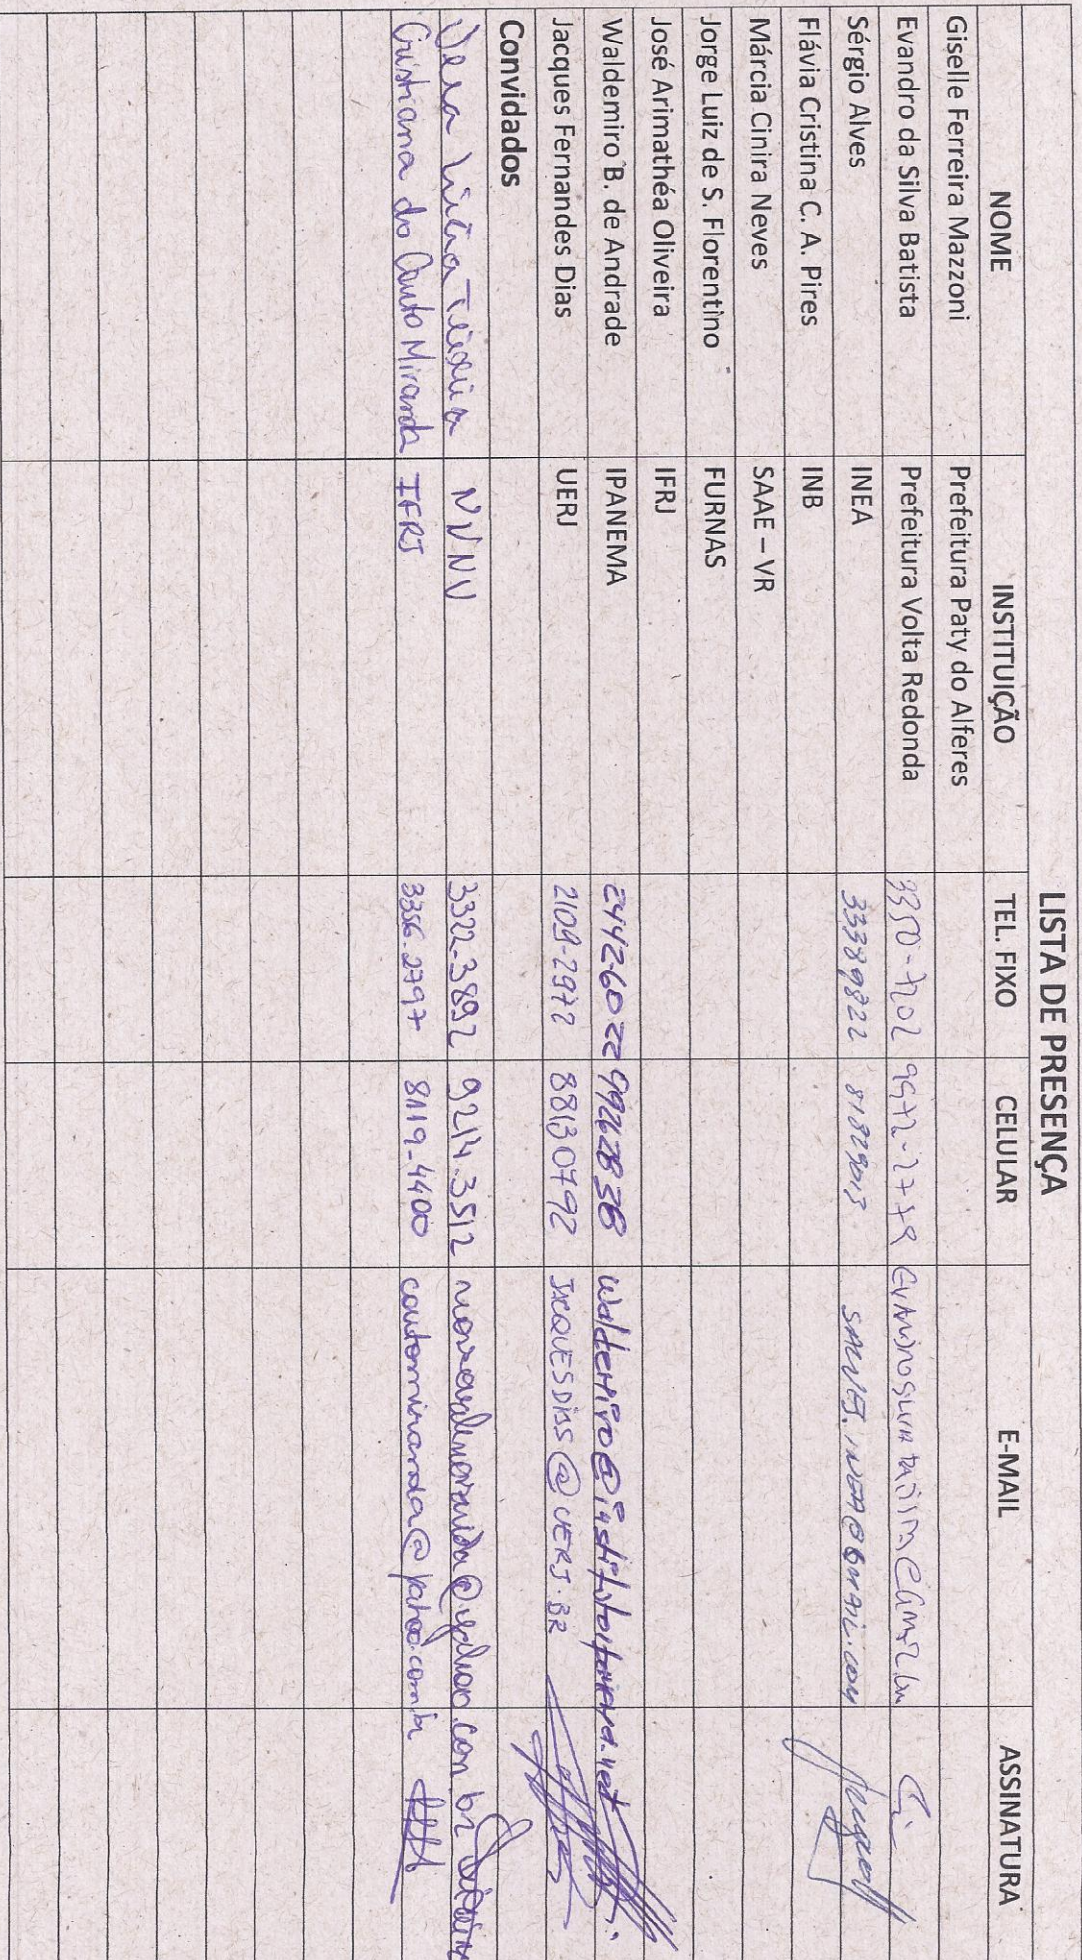 LISTA DE PRESENÇA
NOME INSTITUIÇÃO TEL. FIXO CELULAR E-MAIL ASSINATURA
Giselle Ferreira Mazzoni Prefeitura Paty do Alferes
Evandro da Silva Batista Prefeitura Volta Redonda 3350-7202 9972-2779
Sérgio Alves INEA 33389822 81829013
Flávia Cristina C. A. Pires INB
Márcia Cinira Neves SAAE – VR
Jorge Luiz de S. Florentino FURNAS
José Arimathéa Oliveira IFRJ
Waldemiro B. de Andrade IPANEMA 24426022 99262838 waldemiro@institutoipanema.net
Jacques Fernandes Dias UERJ 2109-2972 88130792 JACQUESDIAS@UERJ.BR
Convidados
Vera Lúcia Teixeira NVNV 3322-3892 9214.3512
Cristiana do Couto Miranda IFRJ 3356.2797 8119-4400 coutomiranda@yahoo.com.br